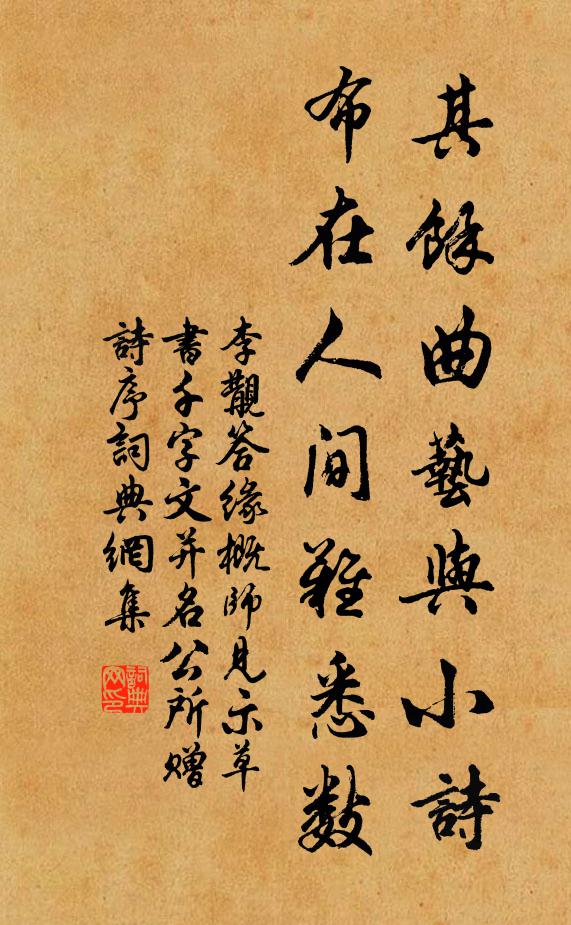 其餘曲藝與小詩
布在人間難悉數
李覯答緣概師見示草
書千字文并名公所贈
詩序詞典網集
詞典
网印